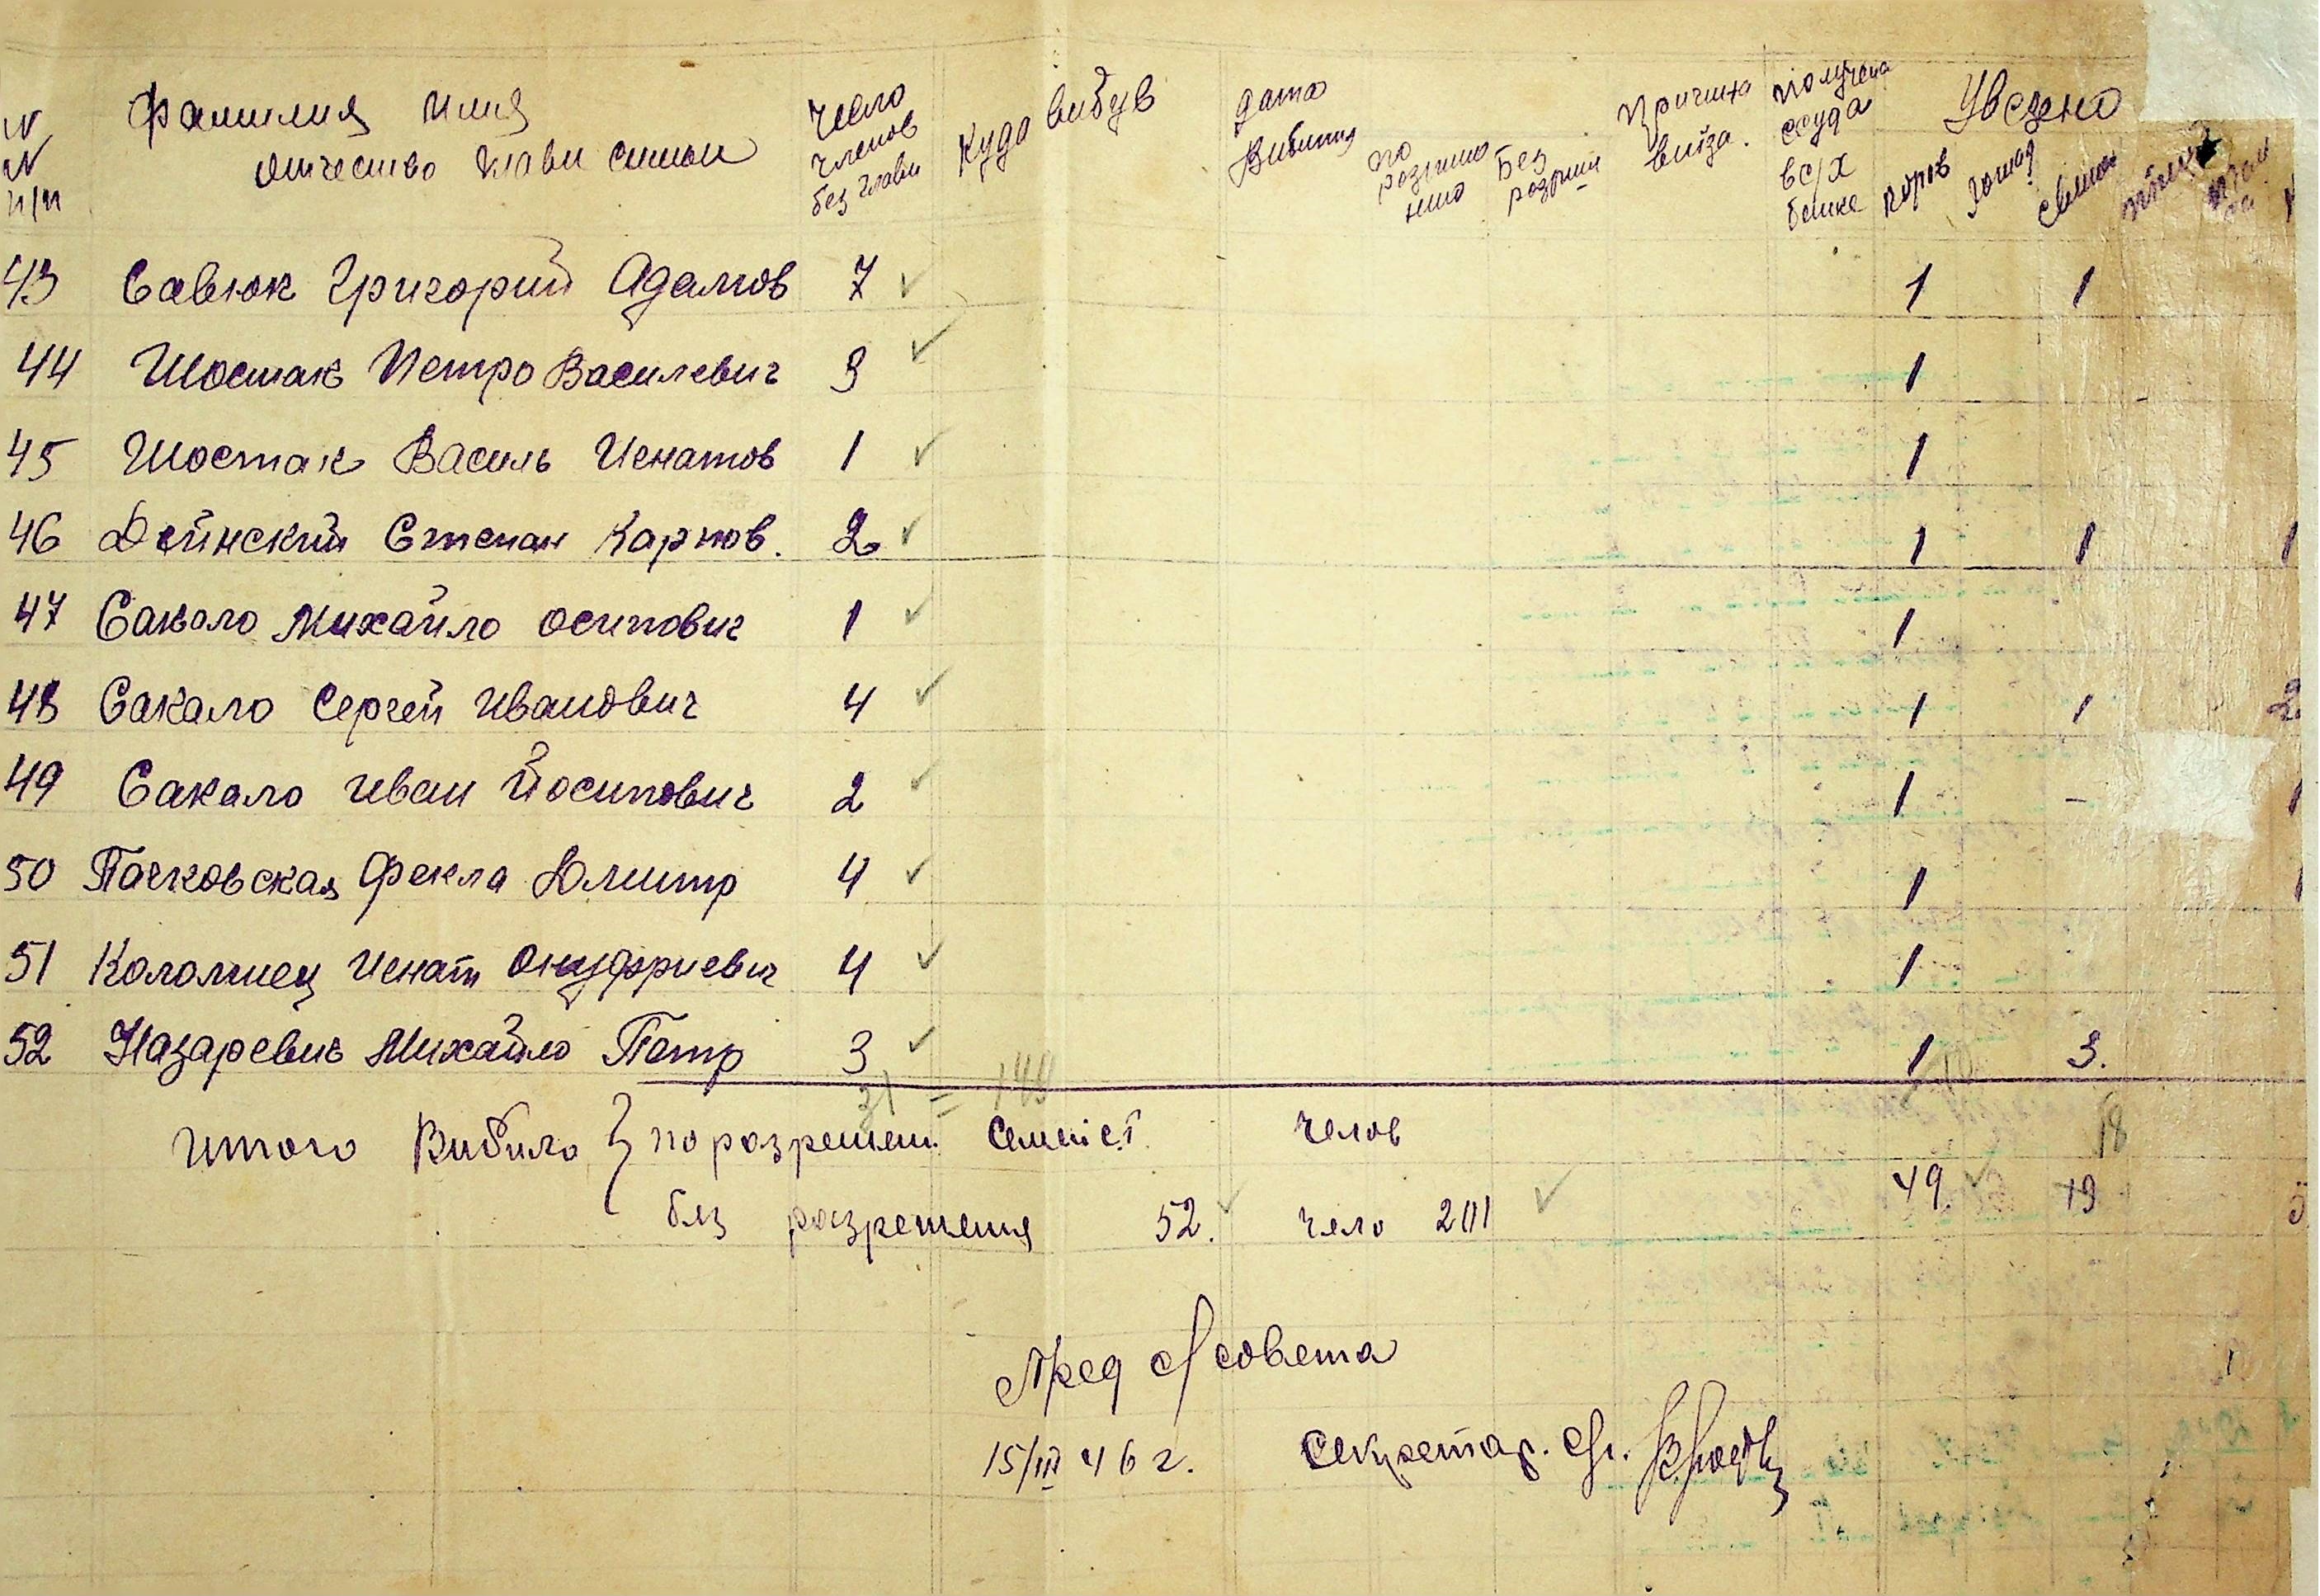 N N п/п Фамилия Имя отчество Глави симьи Число членов без Главы Куда вибув Дата Вибитя по розгишо нию Без розриш Причина виїзда. получена ссуда в с/х банке Увезено коров лошад свиней
43 Савюк Григорий Адамов 7 ✓ 1 1
44 Шостак Петро Василевич 3 ✓ 1
45 Шостак Василь Игнатов 1 ✓ 1
46 Дейнский Степан Карпов. 2 ✓ 1 1 1
47 Сакало Михайло Осипович 1 ✓ 1
48 Сакало Сергей Иванович 4 ✓ 1 1 2
49 Сакало Иван Йосипович 2 ✓ 1 - 1
50 Пачковская Фекла Дмитр 4 ✓ 1 1
51 Коломиец Игнат Онуфриевич 4 ✓ 1
52 Назаревич Михайло Петр 3 ✓ 1 3.
31 = 144
Итого Вибило } по разрешен. семиіст. челов 18
без разрешения 52. ✓ чело 201 ✓ 49 ✓ 19 5
Пред с/совета
15/III 46 г. Секретар. с/с.